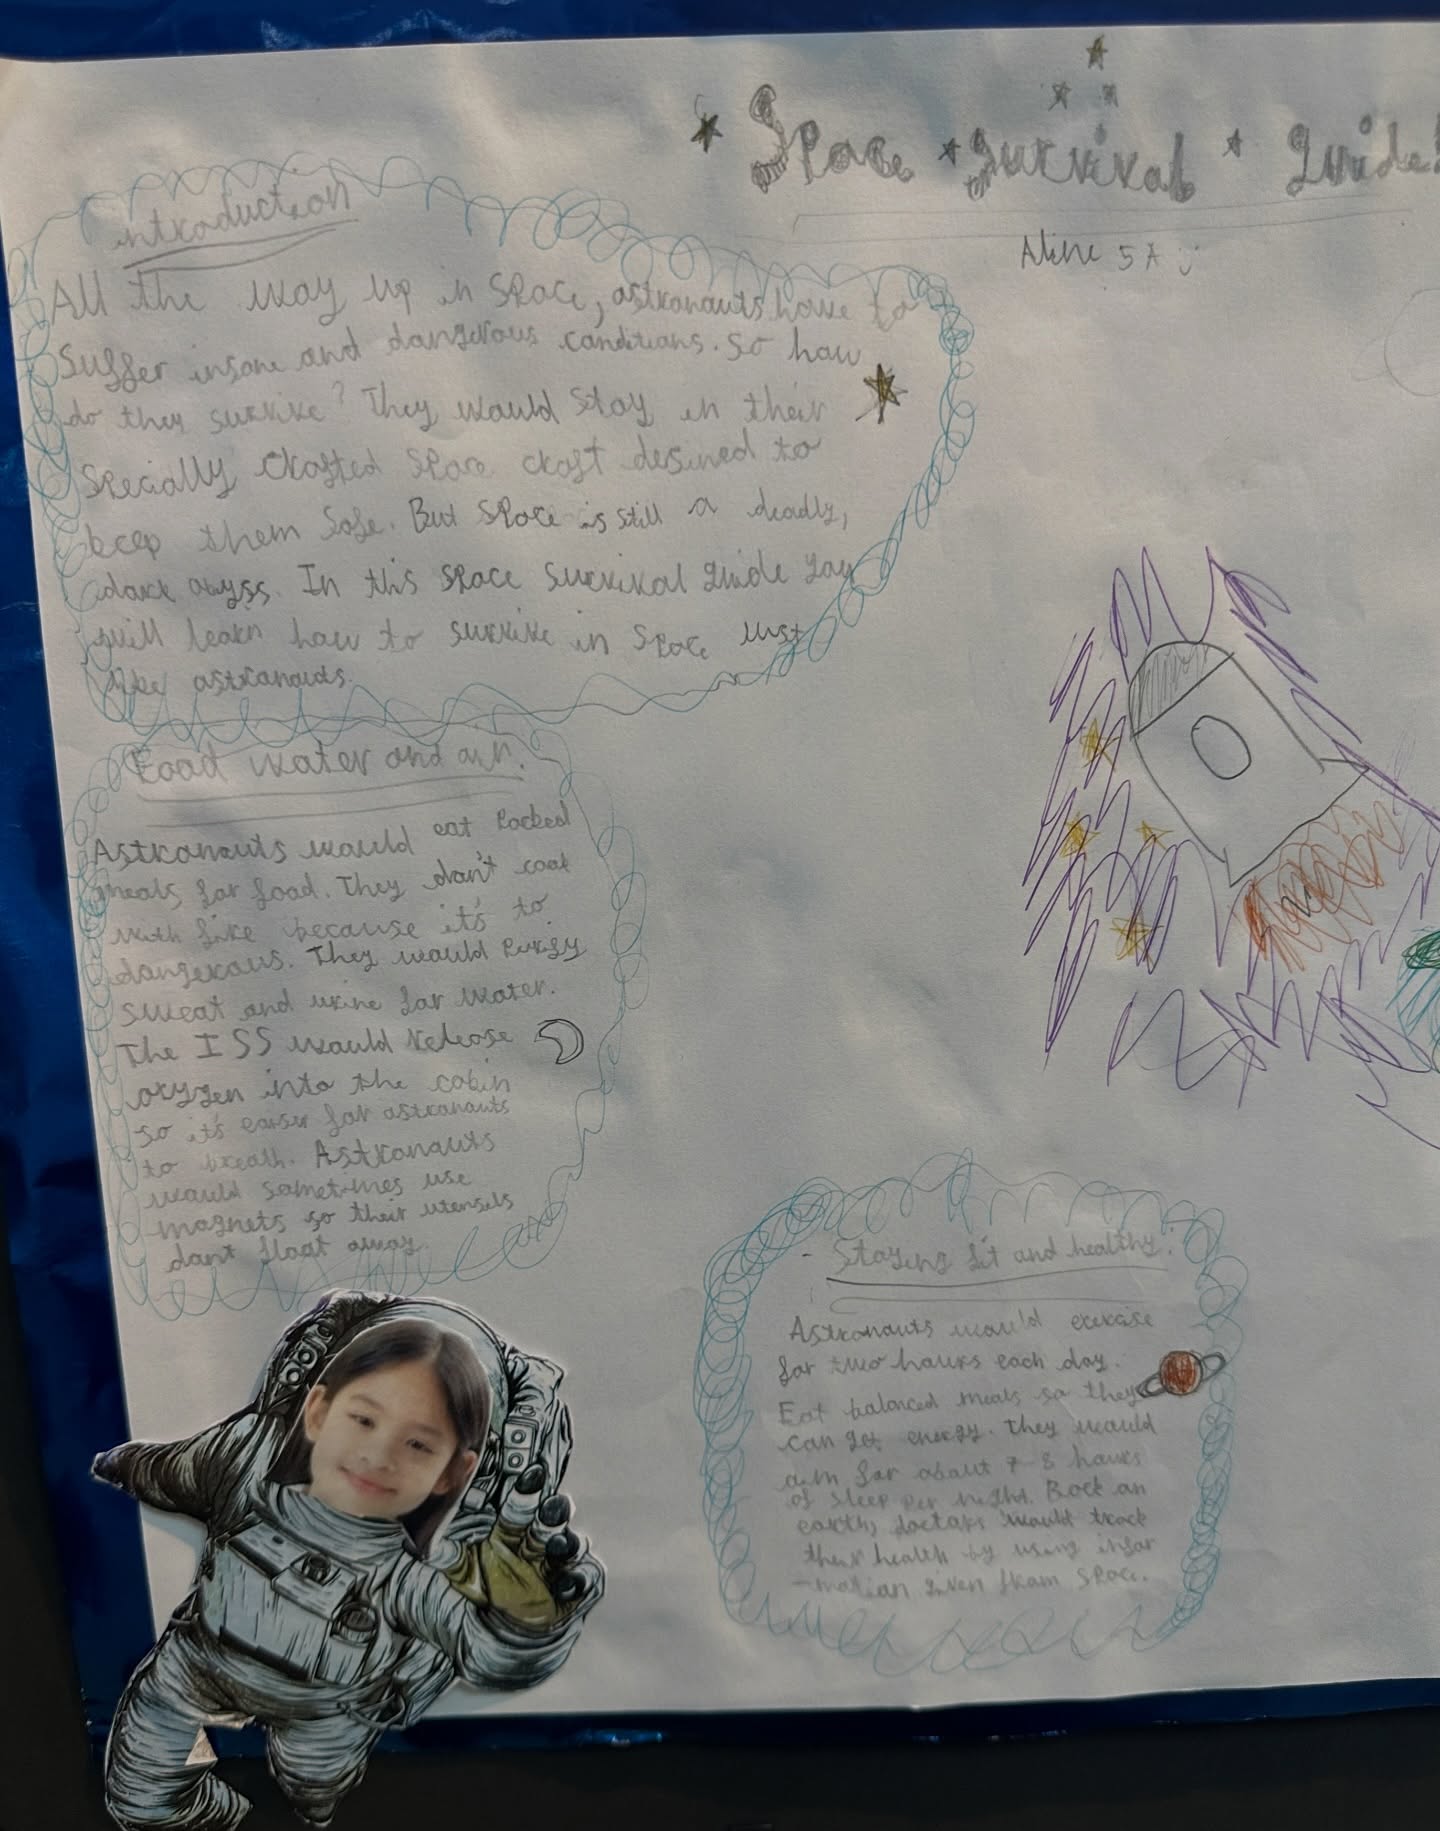 Space Survival Guide!
Aline 5A
introduction
All the way up in Space, astronauts have to
Suffer insane and dangerous conditions. So how
do they survive? They would Stay in their
Specially crafted Space craft desined to
keep them Safe. But Space is still a deadly,
dark abyss. In this Space Survival guide you
will learn how to survive in Space just
like astronauts.
Food water and air.
Astronauts would eat Packed
meals for food. They don't cook
with fire because it's to
dangerous. They would Purify
sweat and urine for water.
The ISS would release
oxygen into the cabin
so it's easier for astronauts
to breath. Astronauts
would sometimes use
magnets so their utensils
dont float away.
Staying fit and healthy.
Astronauts would exercise
for two hours each day.
Eat balanced meals so they
can get energy. They would
aim for about 7-8 hours
of sleep per night. Back on
earth, doctors would track
their health by using infor
-mation given from space.